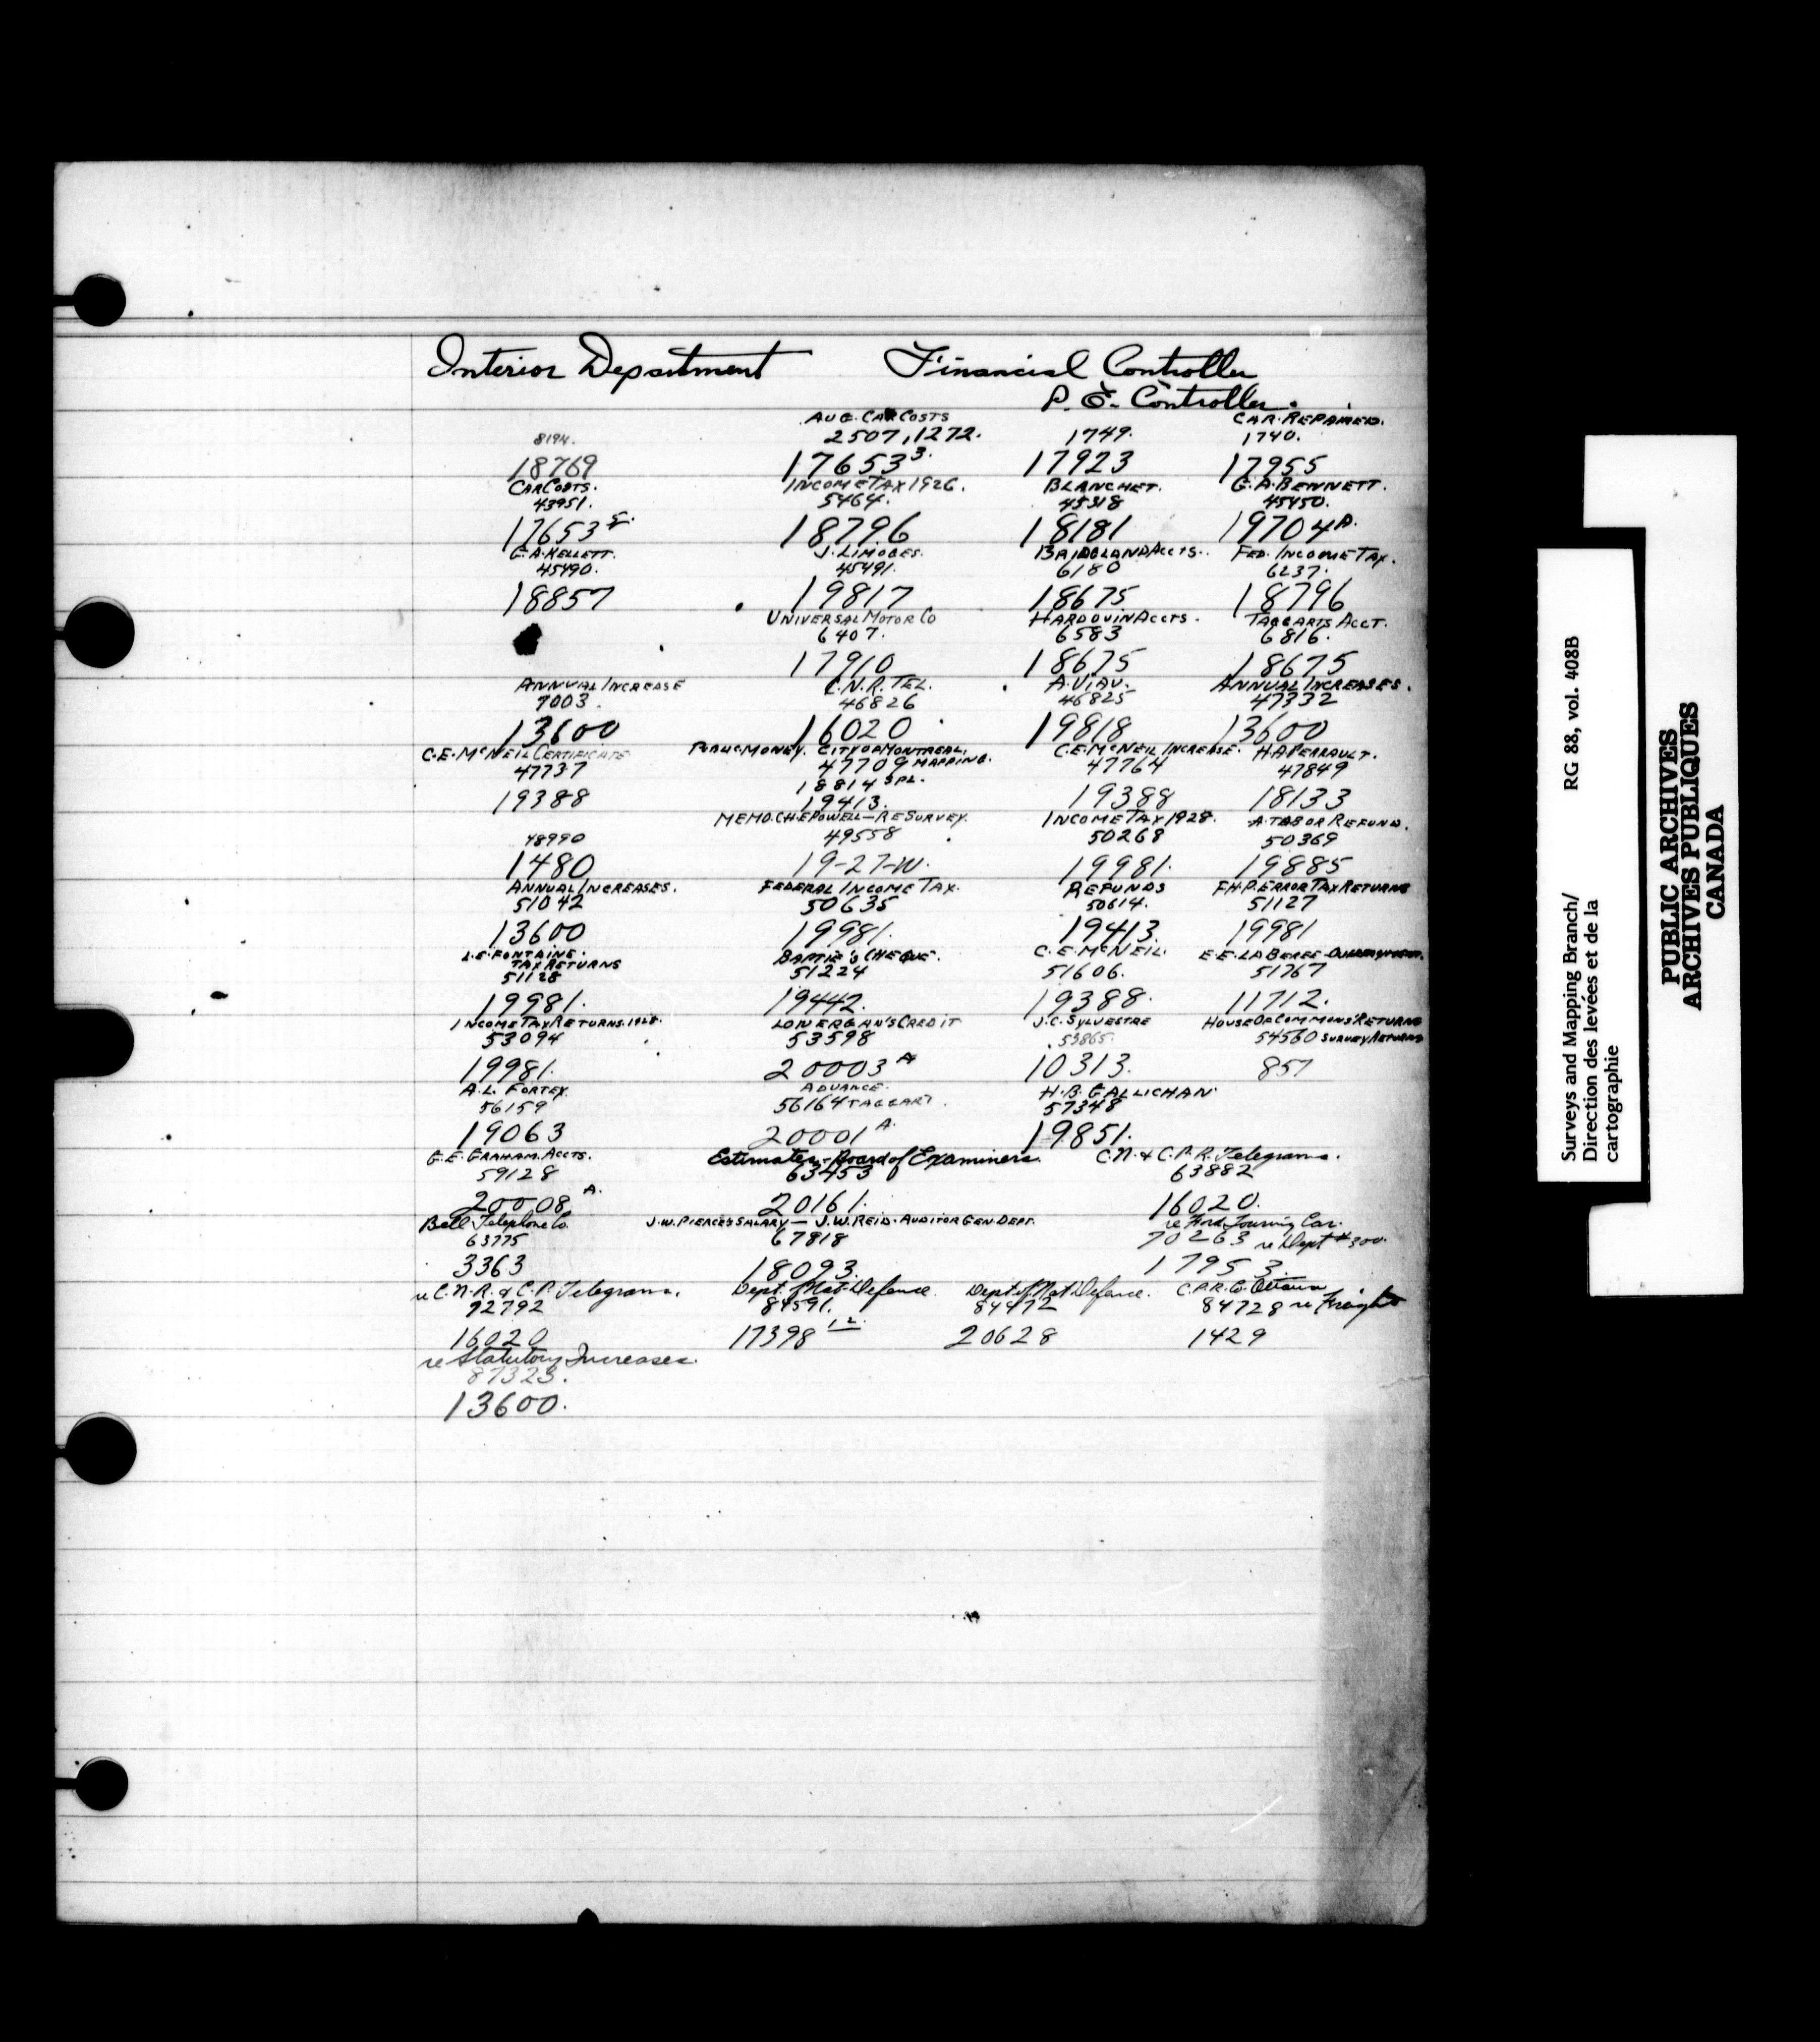 Interior Department Financial Controller
P. E. Controller.
AUG. CAR COSTS CAR REPAIRED.
8194. 2507, 1272. 1749. 1740.
18769 17653 3. 17923 17955
CAR COSTS. INCOME TAX 1926. BLANCHET. G.A. BENNETT.
43951. 5464. 45318 45450.
17653 18796 18181 19704 A.
G.A. KELLETT. J. LIMOGES. BRIDGLAND ACCTS. FED. INCOME TAX.
45490. 45491. 6180 6237.
18857 19817 18675 18796
UNIVERSAL MOTOR CO HARDOUIN ACCTS. TAGGARTS ACCT.
6407. 6583 6816.
17910 18675 18675
ANNUAL INCREASE C.N.R. TEL. A. VIAU. ANNUAL INCREASES.
7003. 46826 46825 47332
13600 16020 19818 13600
C.E. McNEIL CERTIFICATE PUBLIC MONEY. CITY OF MONTREAL. C.E. McNEIL INCREASE. H.A. PERRAULT.
47737 47709 MAPPING. 47764 47849
18814 SPL.
19388 19413. 19388 18133
MEMO. C.H.E. POWELL — RE SURVEY. INCOME TAX 1928. A. TABOR REFUND.
48990 49558 50268 50369
1480 19-27-W. 19981. 19885
ANNUAL INCREASES. FEDERAL INCOME TAX. REFUNDS F.H.P. ERROR TAX RETURNS
51042 50635 50614. 51127
13600 19981. 19413. 19981
L.E. FONTAINE. BARTIE'S CHEQUE. C.E. McNEIL. E.E. LABEREE
TAX RETURNS
51128 51224 51606. 51767
19981. 19442. 19388. 11712.
INCOME TAX RETURNS. 1928. LONERGAN'S CREDIT J.C. SYLVESTRE HOUSE OF COMMONS RETURNS
53094 53598 53865. 54560 SURVEY RETURNS
19981. 20003 A 10313. 857
A.L. FORTEY. ADVANCE. H.B. GALLICHAN.
56159 56164 TAGGART. 57348
19063 20001 A. 19851.
G.E. GRAHAM. ACCTS. Estimates - Board of Examiners. C.N. & C.P.R. Telegrams.
59128 63453 63882
20008 A. 20161. 16020.
Bell Telephone Co. J.W. PIERCES SALARY — J.W. REID. AUDITOR GEN DEPT. re Ford Touring Car.
63775 67818 70263 re Dept #300.
3363 18093. 17953.
re C.N.R. & C.P. Telegrams. Dept. of Nat. Defence. Dept of Nat Defence. C.P.R. Co Ottawa
72792 84591. 84472 84728 re Freight
16020 17398 1.2. 20628 1429
re Statutory Increases.
87323.
13600.
Surveys and Mapping Branch/ RG 88, vol. 408B
Direction des levées et de la
cartographie
PUBLIC ARCHIVES
ARCHIVES PUBLIQUES
CANADA